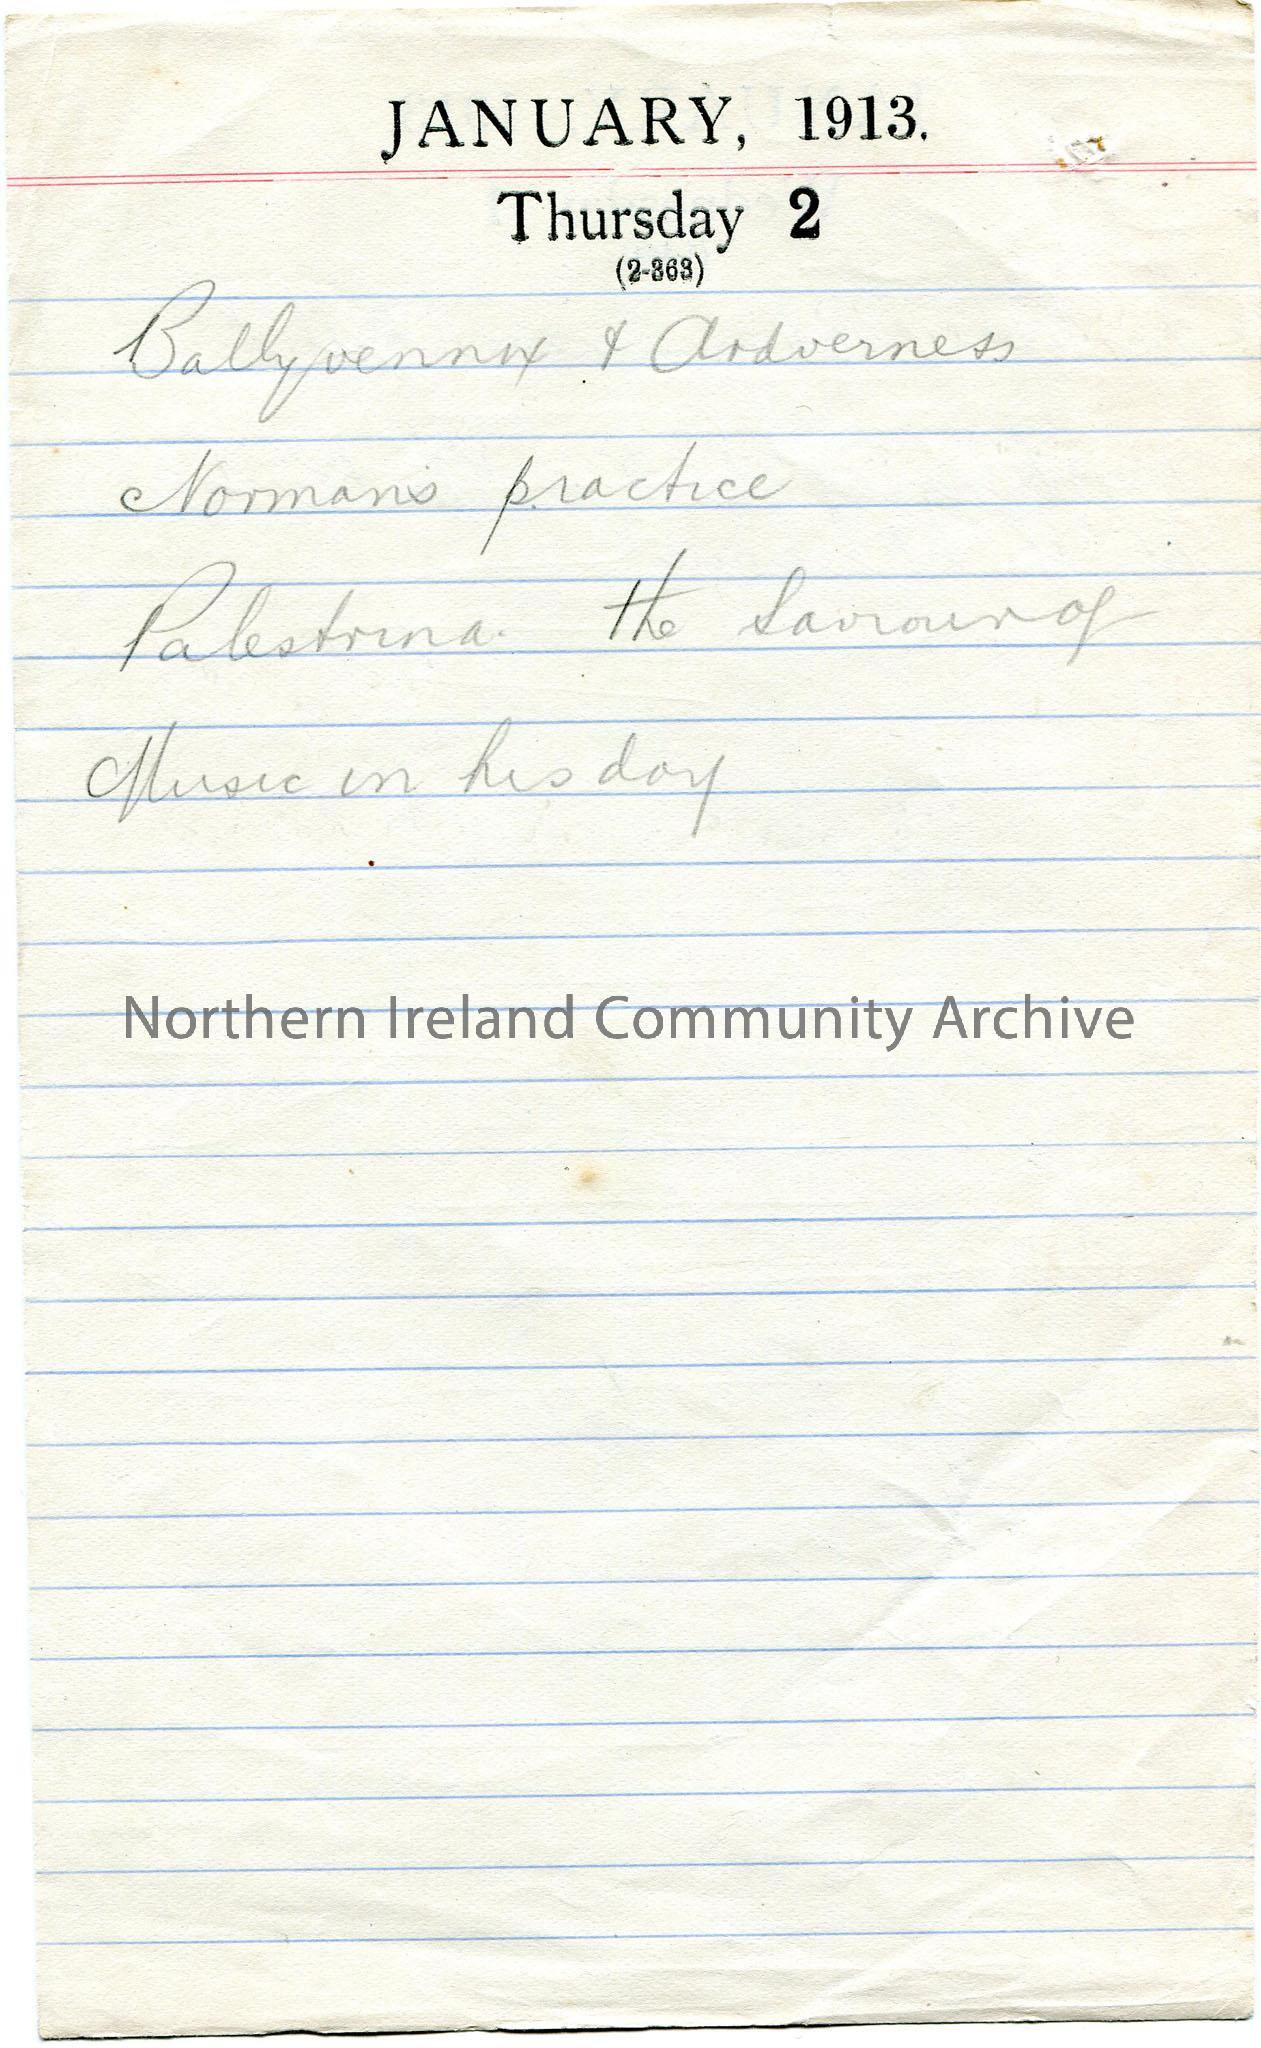 JANUARY, 1913.
Thursday 2
(2-363)
Ballyvennox & Ardverness
Norman's practice
Palestrina. the Saviour of
Music in his day
Northern Ireland Community Archive